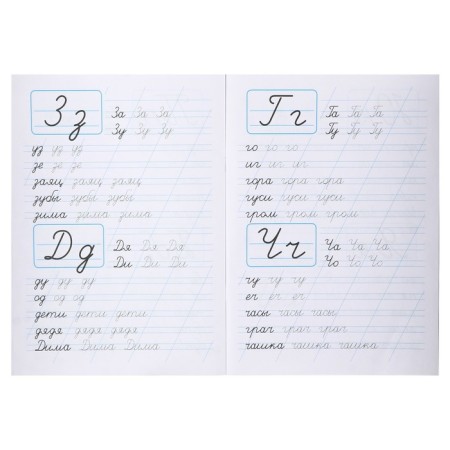 З з
За За За
Зу Зу Зу
уз уз уз
зе зе зе
заяц заяц заяц
зубы зубы зубы
зима зима зима
Д д
Дя Дя Дя
Ди Ди Ди
ду ду ду
од од од
дети дети дети
дядя дядя дядя
Дима Дима Дима
Г г
Га Га Га
Гу Гу Гу
го го го
иг иг иг
гора гора гора
гуси гуси гуси
гром гром гром
Ч ч
Ча Ча Ча
Чо Чо Чо
чу чу чу
еч еч еч
часы часы часы
грач грач грач
чашка чашка чашка